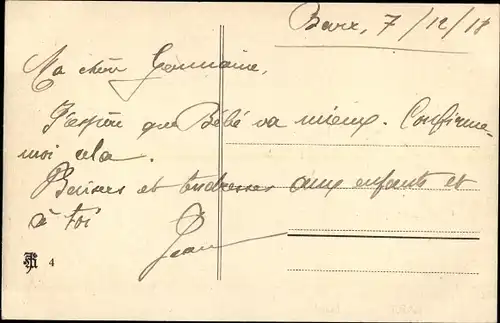 Barr, 7/12/18
Ma chère Germaine,
J'espère que Bébé va mieux. Confirme-
moi cela.
Baisers et tendresses aux enfants et
à toi
Jean
4